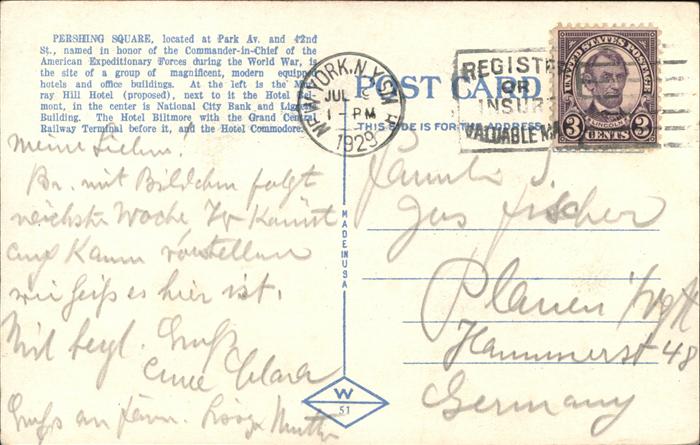 PERSHING SQUARE, located at Park Av. and 42nd
St., named in honor of the Commander-in-Chief of the
American Expeditionary Forces during the World War, is
the site of a group of magnificent, modern equipped
hotels and office buildings. At the left is the Mur-
ray Hill Hotel (proposed), next to it the Hotel
mont, in the center is National City Bank and
Building. The Hotel Biltmore with the Grand Central
Railway Terminal before it, and the Hotel Commodore.
POST CARD
THIS SIDE IS FOR THE ADDRESS
NEW YORK, N.Y.
JUL
1 - PM
1929
REGISTER
OR
INSURE
VALUABLE MAIL
UNITED STATES POSTAGE
LINCOLN
3 CENTS 3
Meine Lieben!
Br. mit Bildchen folgt
nächste Woche, Ihr könnt
euch kaum vorstellen
wie heiß es hier ist.
Mit herzl. Gruß
Eure Clara
Gruß an Mutter
MADE IN USA
W
51
Familie
Gus Fischer
Plauen
Hammerst 48
Germany